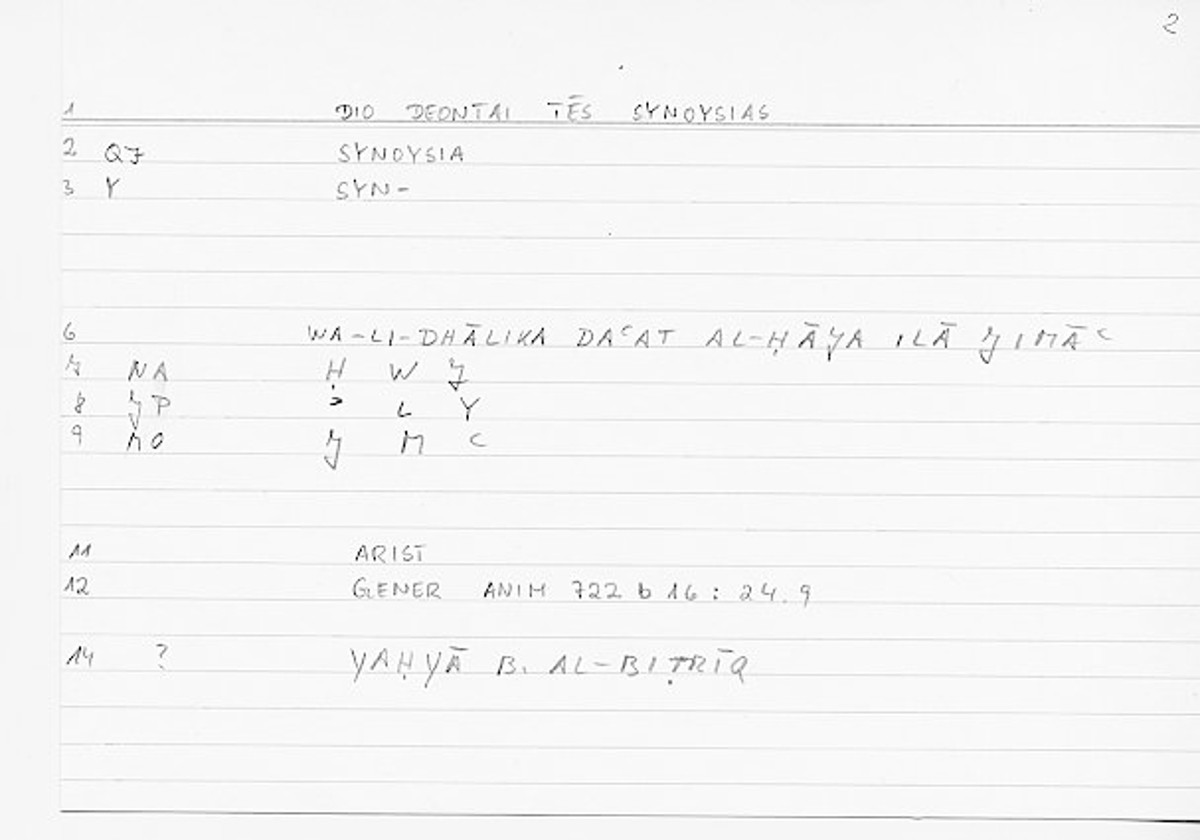 2
1 DIO DEONTAI TĒS SYNOYSIAS
2 QJ SYNOYSIA
3 Y SYN-
6 WA-LI-DHĀLIKA DAʿAT AL-ḤĀJA ILĀ JIMĀʿ
7 NA Ḥ W J
8 JP ʾ L Y
9 MO J M ʿ
11 ARIST
12 GENER ANIM 722 b 16 : 24.9
14 ? YAḤYĀ B. AL-BIṬRĪQ